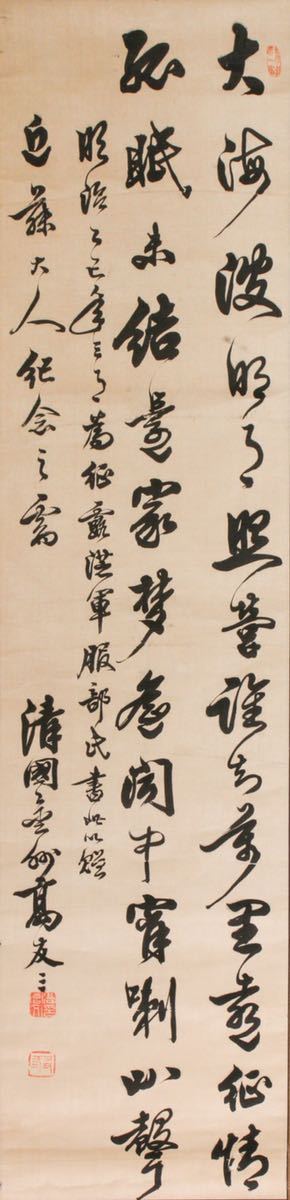 大海波明月照營誰知萬里遠征情
孤眠未結還家夢忽聞中宵喇叭聲
明治乙巳年三月為征露從軍服部氏書此以贈
近藤大人紀念之需
清國 州高友三